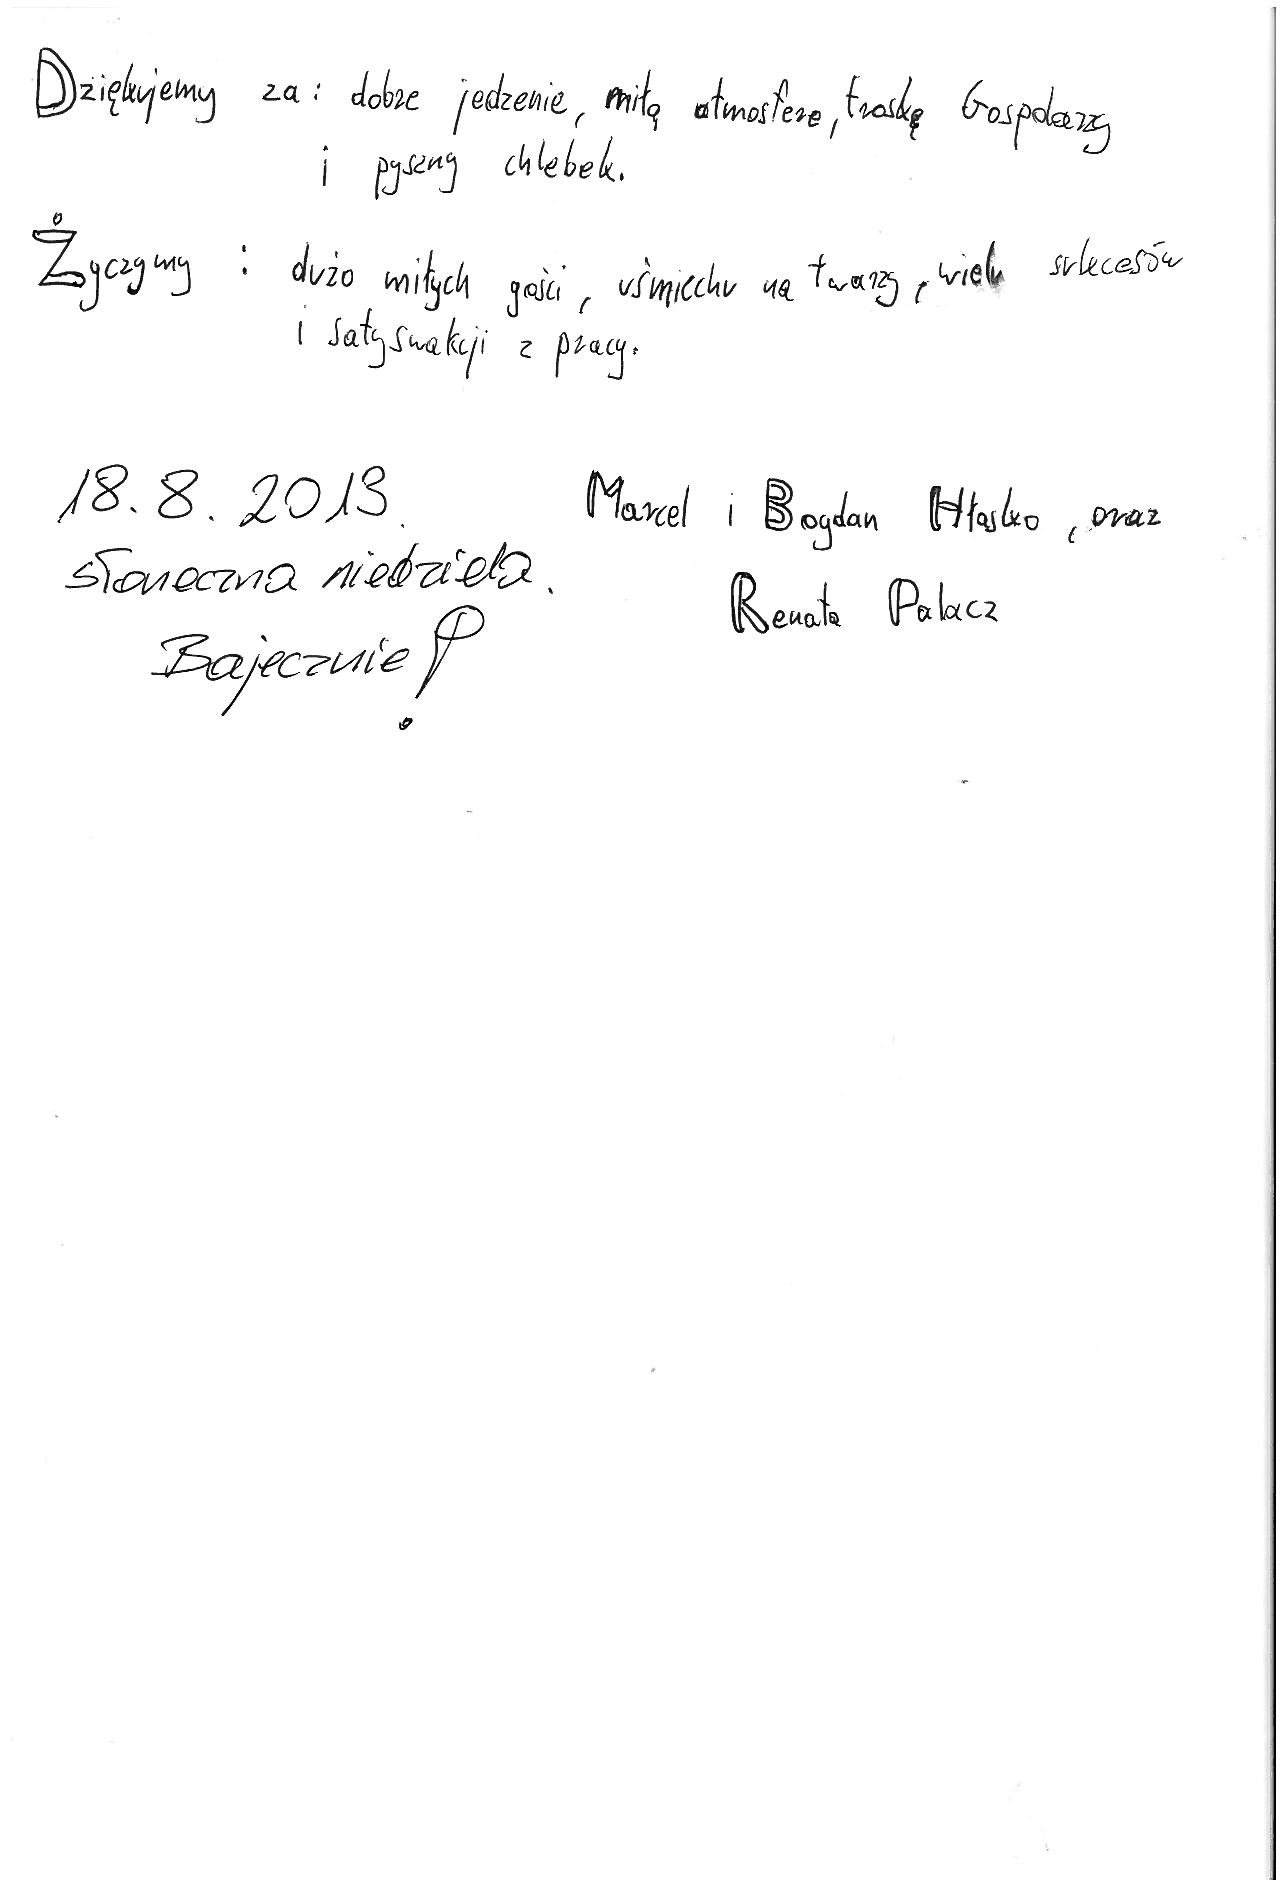 Dziękujemy za: dobre jedzenie, miłą atmosfere, troskę Gospodarzy
i pyszny chlebek.
Życzymy: dużo miłych gości, uśmiechu na twarzy, wielu sukcesów
i satyswakcji z pracy.
18.8.2013.
słoneczna niedziela.
Bajecznie!
Marcel i Bogdan Hłasko, oraz
Renata Palacz